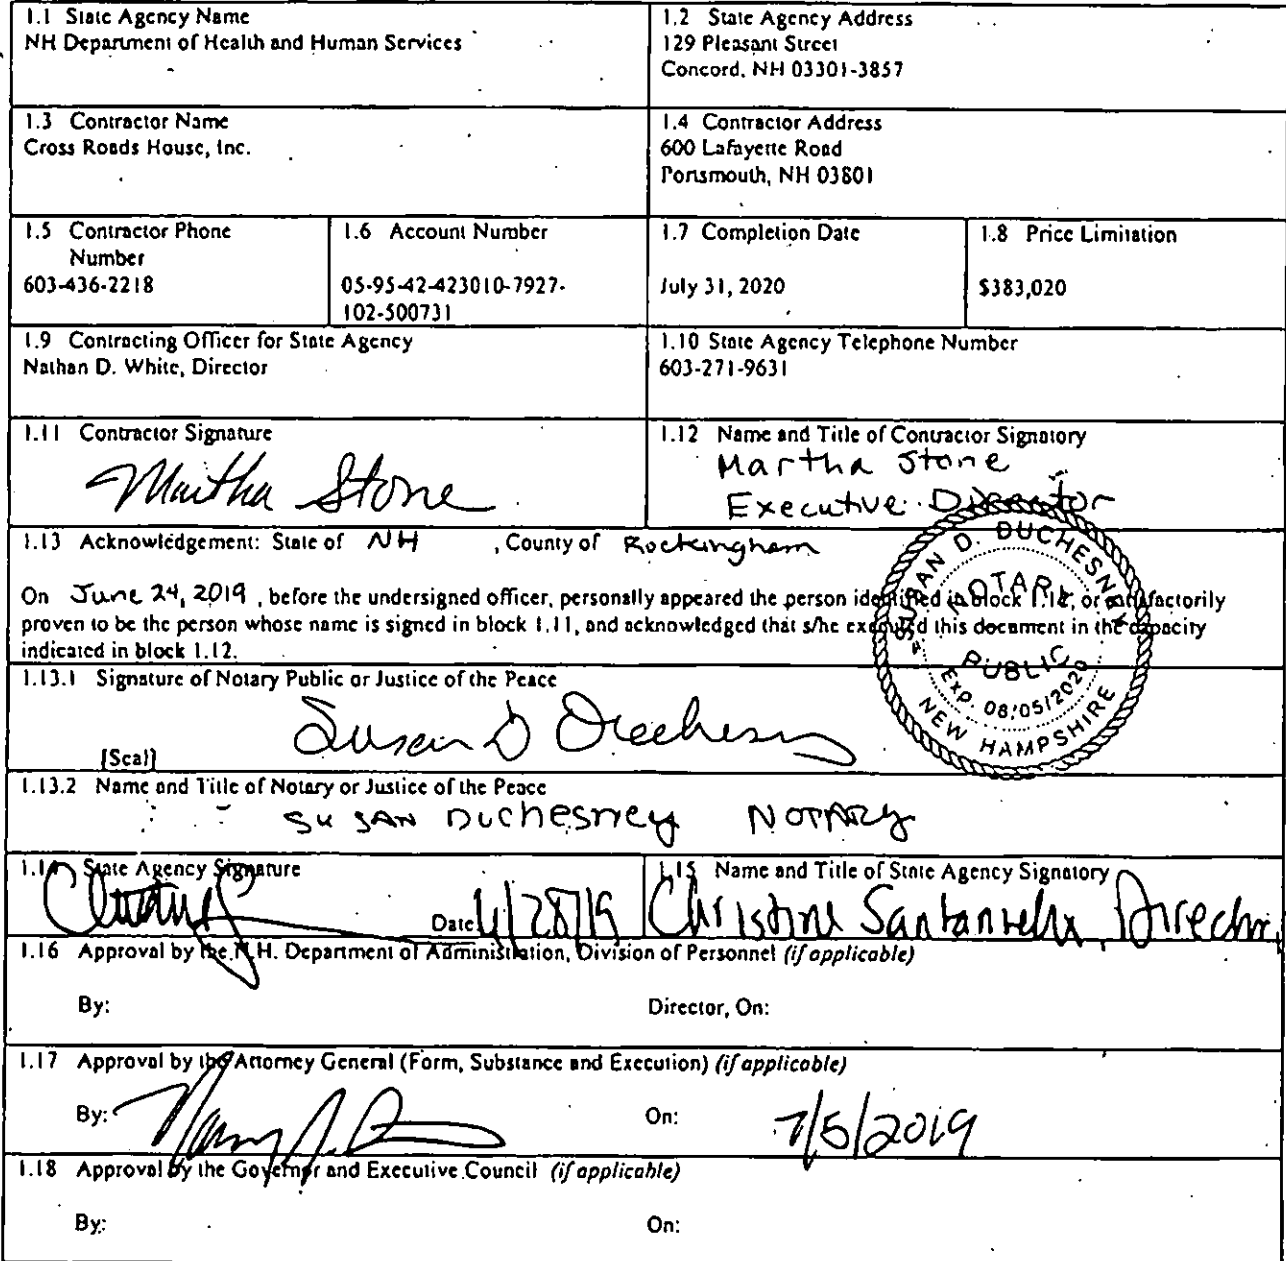 1.1 State Agency Name
NH Department of Health and Human Services
1.2 State Agency Address
129 Pleasant Street
Concord, NH 03301-3857
1.3 Contractor Name
Cross Roads House, Inc.
1.4 Contractor Address
600 Lafayette Road
Portsmouth, NH 03801
1.5 Contractor Phone
Number
603-436-2218
1.6 Account Number
05-95-42-423010-7927-
102-500731
1.7 Completion Date
July 31, 2020
1.8 Price Limitation
$383,020
1.9 Contracting Officer for State Agency
Nathan D. White, Director
1.10 State Agency Telephone Number
603-271-9631
1.11 Contractor Signature
Martha Stone
1.12 Name and Title of Contractor Signatory
Martha Stone
Executive Director
1.13 Acknowledgement: State of NH , County of Rockingham
On June 24, 2019 , before the undersigned officer, personally appeared the person identified in block 1.12, or satisfactorily
proven to be the person whose name is signed in block 1.11, and acknowledged that s/he executed this document in the capacity
indicated in block 1.12.
SUSAN D. DUCHESNEY
NOTARY
PUBLIC
EXP. 08/05/2020
NEW HAMPSHIRE
1.13.1 Signature of Notary Public or Justice of the Peace
Susan D Duchesney
[Seal]
1.13.2 Name and Title of Notary or Justice of the Peace
SUSAN Duchesney NOTARY
1.14 State Agency Signature
Date: 6/28/19
1.15 Name and Title of State Agency Signatory
Christine Santaniello, Director
1.16 Approval by the N.H. Department of Administration, Division of Personnel (if applicable)
By: Director, On:
1.17 Approval by the Attorney General (Form, Substance and Execution) (if applicable)
By: On: 7/5/2019
1.18 Approval by the Governor and Executive Council (if applicable)
By: On: